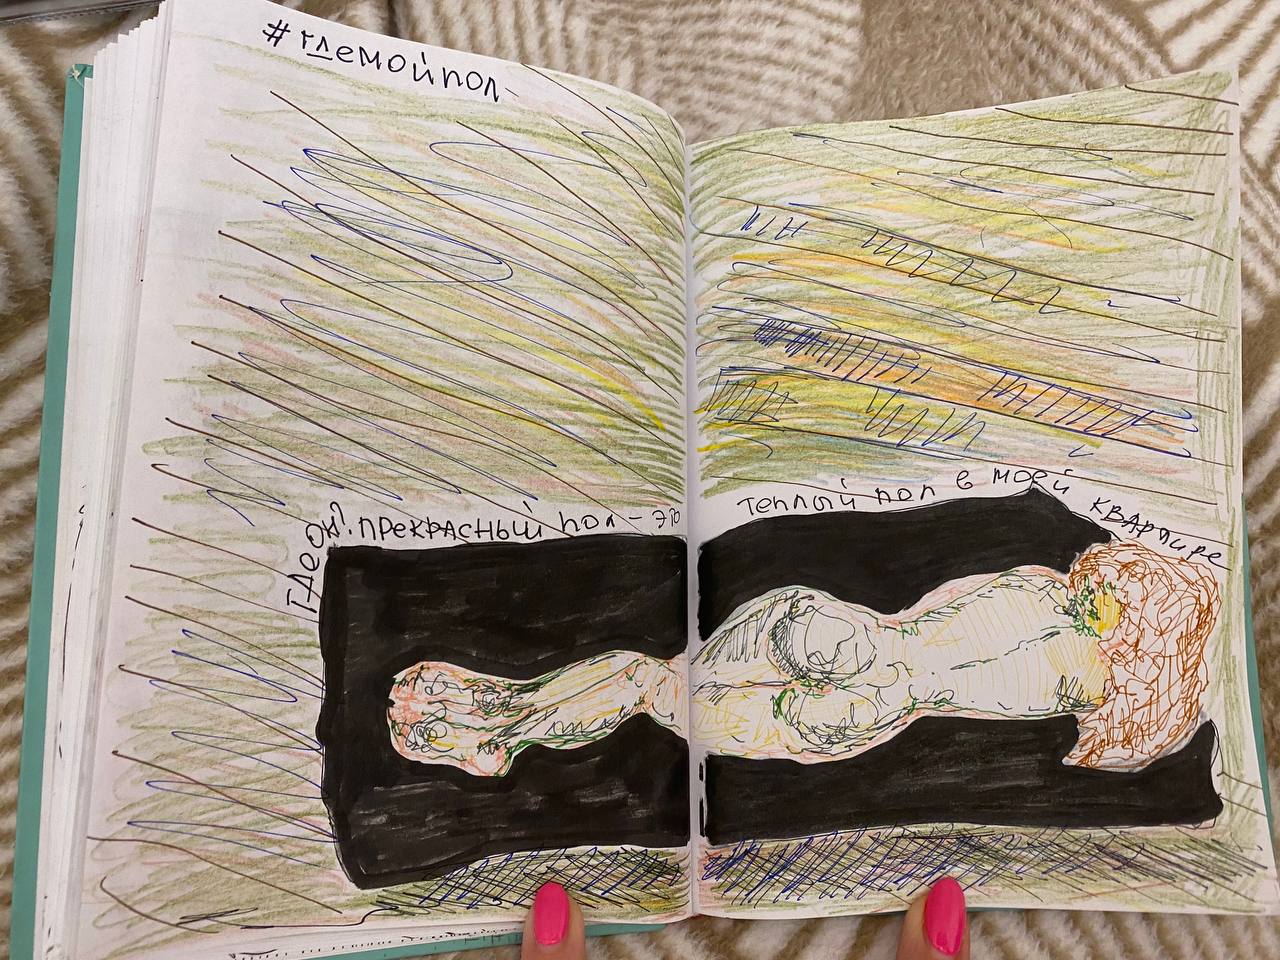 #гдемойпол-
где он? прекрасный пол - это
теплый пол в моей квартире